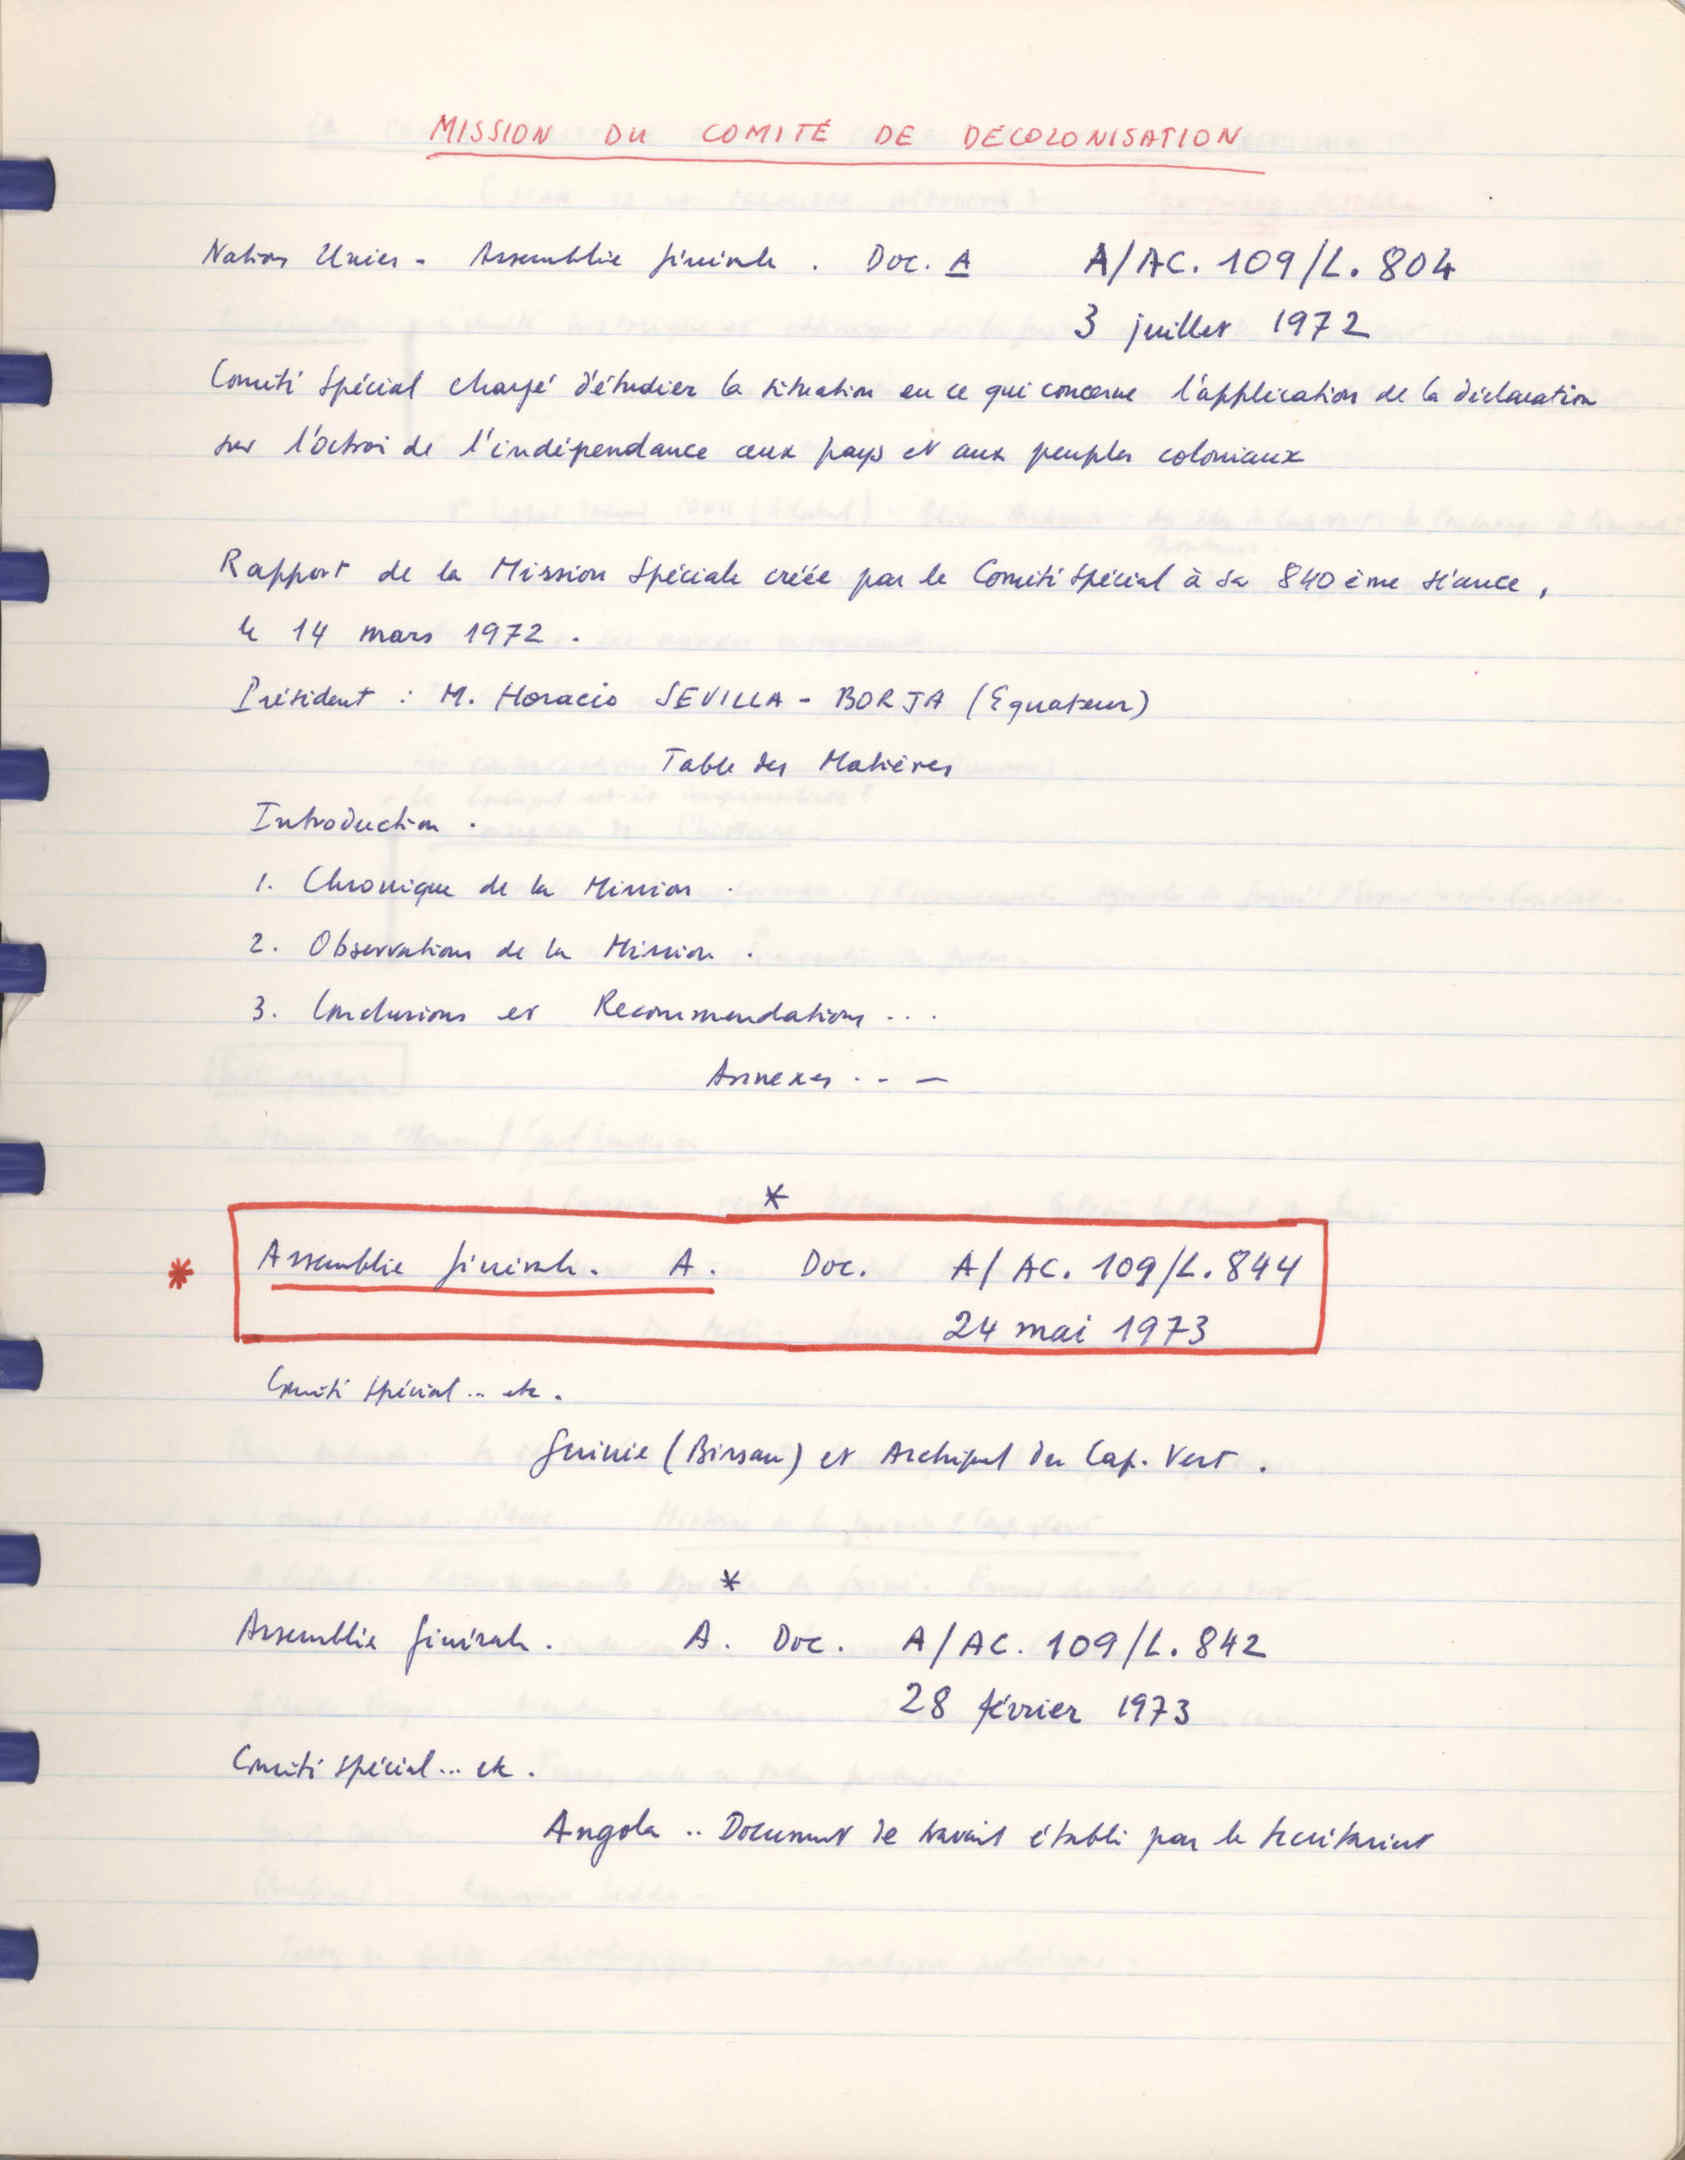 MISSION DU COMITÉ DE DÉCOLONISATION
Nations Unies - Assemblée générale. Doc. A A/AC.109/L.804
3 juillet 1972
Comité Spécial chargé d'étudier la situation en ce qui concerne l'application de la déclaration
sur l'octroi de l'indépendance aux pays et aux peuples coloniaux
Rapport de la Mission Spéciale créée par le Comité Spécial à sa 840ème séance,
le 14 mars 1972.
Président : M. Horacio SEVILLA-BORJA (Equateur)
Table des Matières
Introduction.
1. Chronique de la Mission.
2. Observations de la Mission.
3. Conclusions et Recommendations...
Annexes...
*
* Assemblée générale. A. Doc. A/AC.109/L.844
24 mai 1973
Comité spécial... etc.
Guinée (Bissau) et Archipel du Cap. Vert.
*
Assemblée générale. A. Doc. A/AC.109/L.842
28 février 1973
Comité spécial... etc.
Angola .. Document de travail établi par le Secrétariat